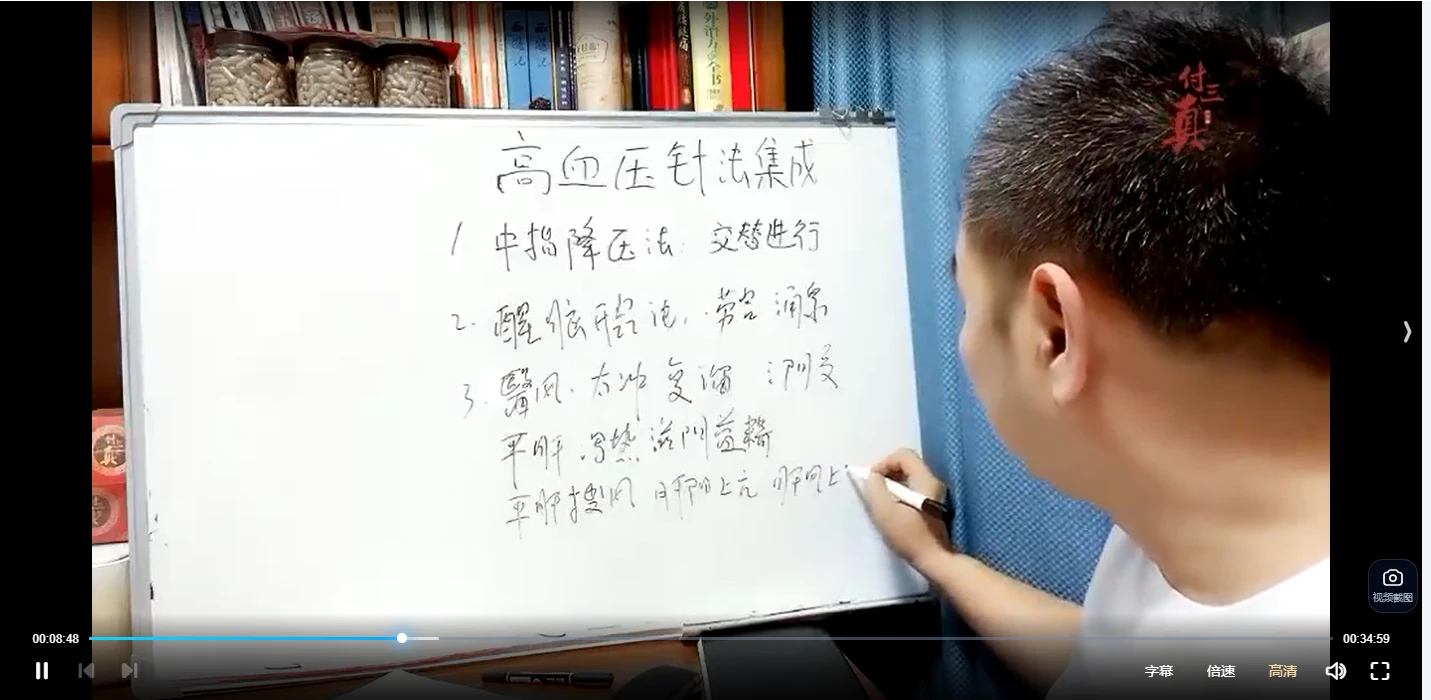 付三真
高血压针法集成
1 中指降压法: 交替进行
2. 醒脑开窍法, 劳宫 涌泉
3. 翳风. 太冲 复溜 三阴交
平肝 泻热 滋阴益
平肝搜风 肝阳上亢 肝风上
付三真
视频截图
00:08:48
00:34:59
字幕 倍速 高清